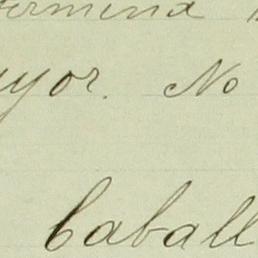 ermina
yor. No
Caball